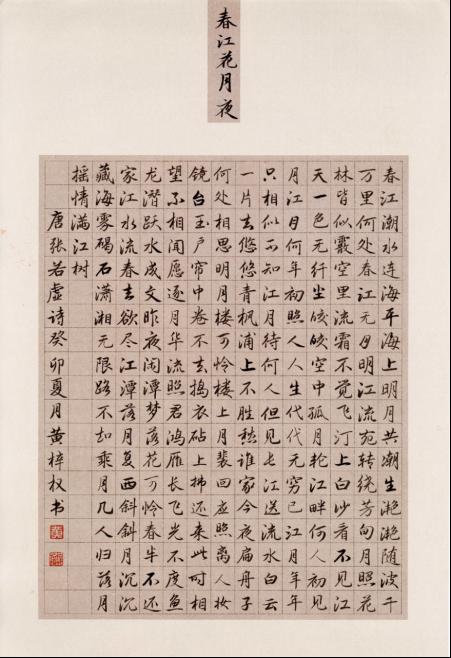 春江花月夜
春江潮水连海平海上明月共潮生滟滟随波千
万里何处春江无月明江流宛转绕芳甸月照花
林皆似霰空里流霜不觉飞汀上白沙看不见江
天一色无纤尘皎皎空中孤月轮江畔何人初见
月江月何年初照人人生代代无穷已江月年年
只相似不知江月待何人但见长江送流水白云
一片去悠悠青枫浦上不胜愁谁家今夜扁舟子
何处相思明月楼可怜楼上月裴回应照离人妆
镜台玉户帘中卷不去捣衣砧上拂还来此时相
望不相闻愿逐月华流照君鸿雁长飞光不度鱼
龙潜跃水成文昨夜闲潭梦落花可怜春半不还
家江水流春去欲尽江潭落月复西斜斜月沉沉
藏海雾碣石潇湘无限路不知乘月几人归落月
摇情满江树
唐张若虚诗癸卯夏月黄梓权书